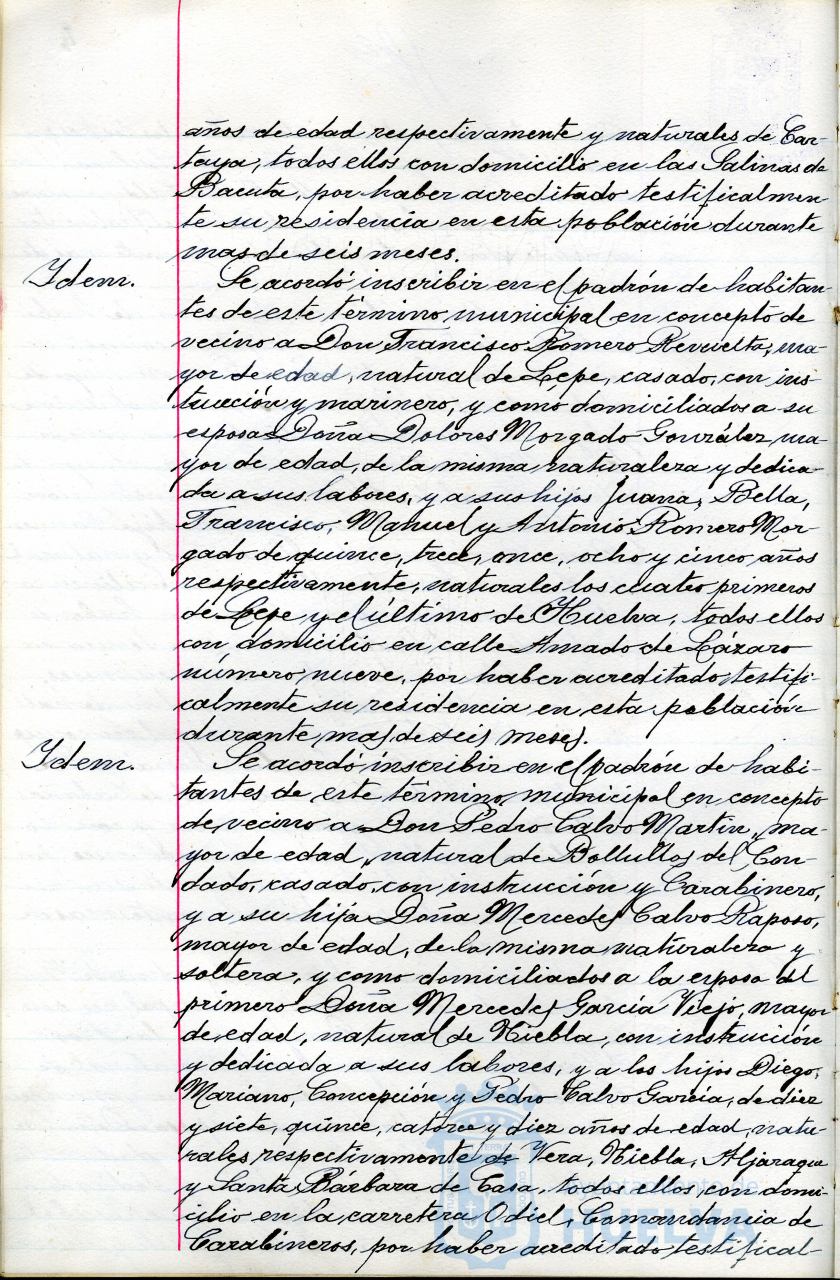 años de edad respectivamente y naturales de Car-
taya, todos ellos con domicilio en las Salinas de
Bacuta, por haber acreditado testificalmen-
te su residencia en esta población durante
mas de seis meses.
Idem.
Se acordó inscribir en el padrón de habitan-
tes de este término municipal en concepto de
vecino a Don Francisco Romero Revuelta, ma-
yor de edad, natural de Lepe, casado, con ins-
trucción y marinero, y como domiciliados a su
esposa Doña Dolores Morgado González, ma-
yor de edad, de la misma naturaleza y dedica-
da a sus labores, y a sus hijos Juana, Bella,
Francisco, Manuel y Antonio Romero Mor-
gado de quince, trece, once, ocho y cinco años
respectivamente, naturales los cuatro primeros
de Lepe y el último de Huelva, todos ellos
con domicilio en calle Amado de Lázaro
número nueve, por haber acreditado testifi-
calmente su residencia en esta población
durante mas de seis meses.
Idem.
Se acordó inscribir en el padrón de habi-
tantes de este término municipal en concepto
de vecino a Don Pedro Calvo Martín, ma-
yor de edad, natural de Bollullos del Con-
dado, casado, con instrucción y Carabinero,
y a su hija Doña Mercedes Calvo Raposo,
mayor de edad, de la misma naturaleza y
soltera, y como domiciliados a la esposa del
primero Doña Mercedes García Viejo, mayor
de edad, natural de Niebla, con instrucción
y dedicada a sus labores, y a los hijos Diego,
Mariano, Concepción y Pedro Calvo García, de diez
y siete, quince, catorce y diez años de edad, natu-
rales respectivamente de Vera, Niebla, Aljaraque
y Santa Bárbara de Casa, todos ellos con domi-
cilio en la carretera Odiel, Comandancia de
Carabineros, por haber acreditado testifical-
Ayuntamiento de
HUELVA